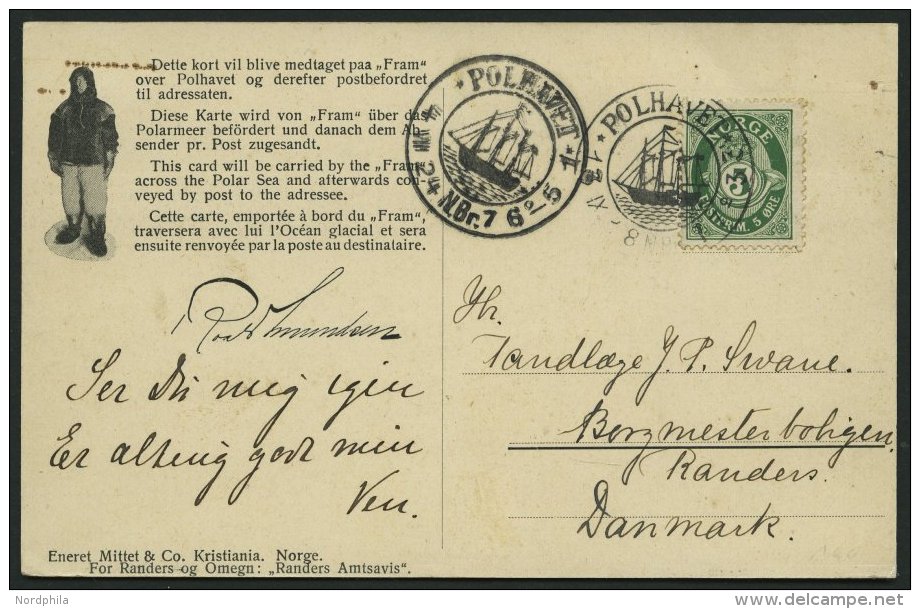 Dette kort vil blive medtaget paa „Fram"
over Polhavet og derefter postbefordret
til adressaten.
Diese Karte wird von „Fram" über das
Polarmeer befördert und danach dem Ab-
sender pr. Post zugesandt.
This card will be carried by the „Fram"
across the Polar Sea and afterwards con-
veyed by post to the adressee.
Cette carte, emportée à bord du „Fram",
traversera avec lui l'Océan glacial et sera
ensuite renvoyée par la poste au destinataire.
POLHAVET
24 N.Br. 76° 5
POLHAVET
NORGE
5
5 ØRE
Roald Amundsen
Ser Du mig igen
Er alting godt min
Ven.
Hr.
Tandlæge J. P. Swane.
Borgmesterboligen.
Randers.
Danmark.
Eneret Mittet & Co. Kristiania. Norge.
For Randers og Omegn: „Randers Amtsavis".
Nordphila
delcampe.net